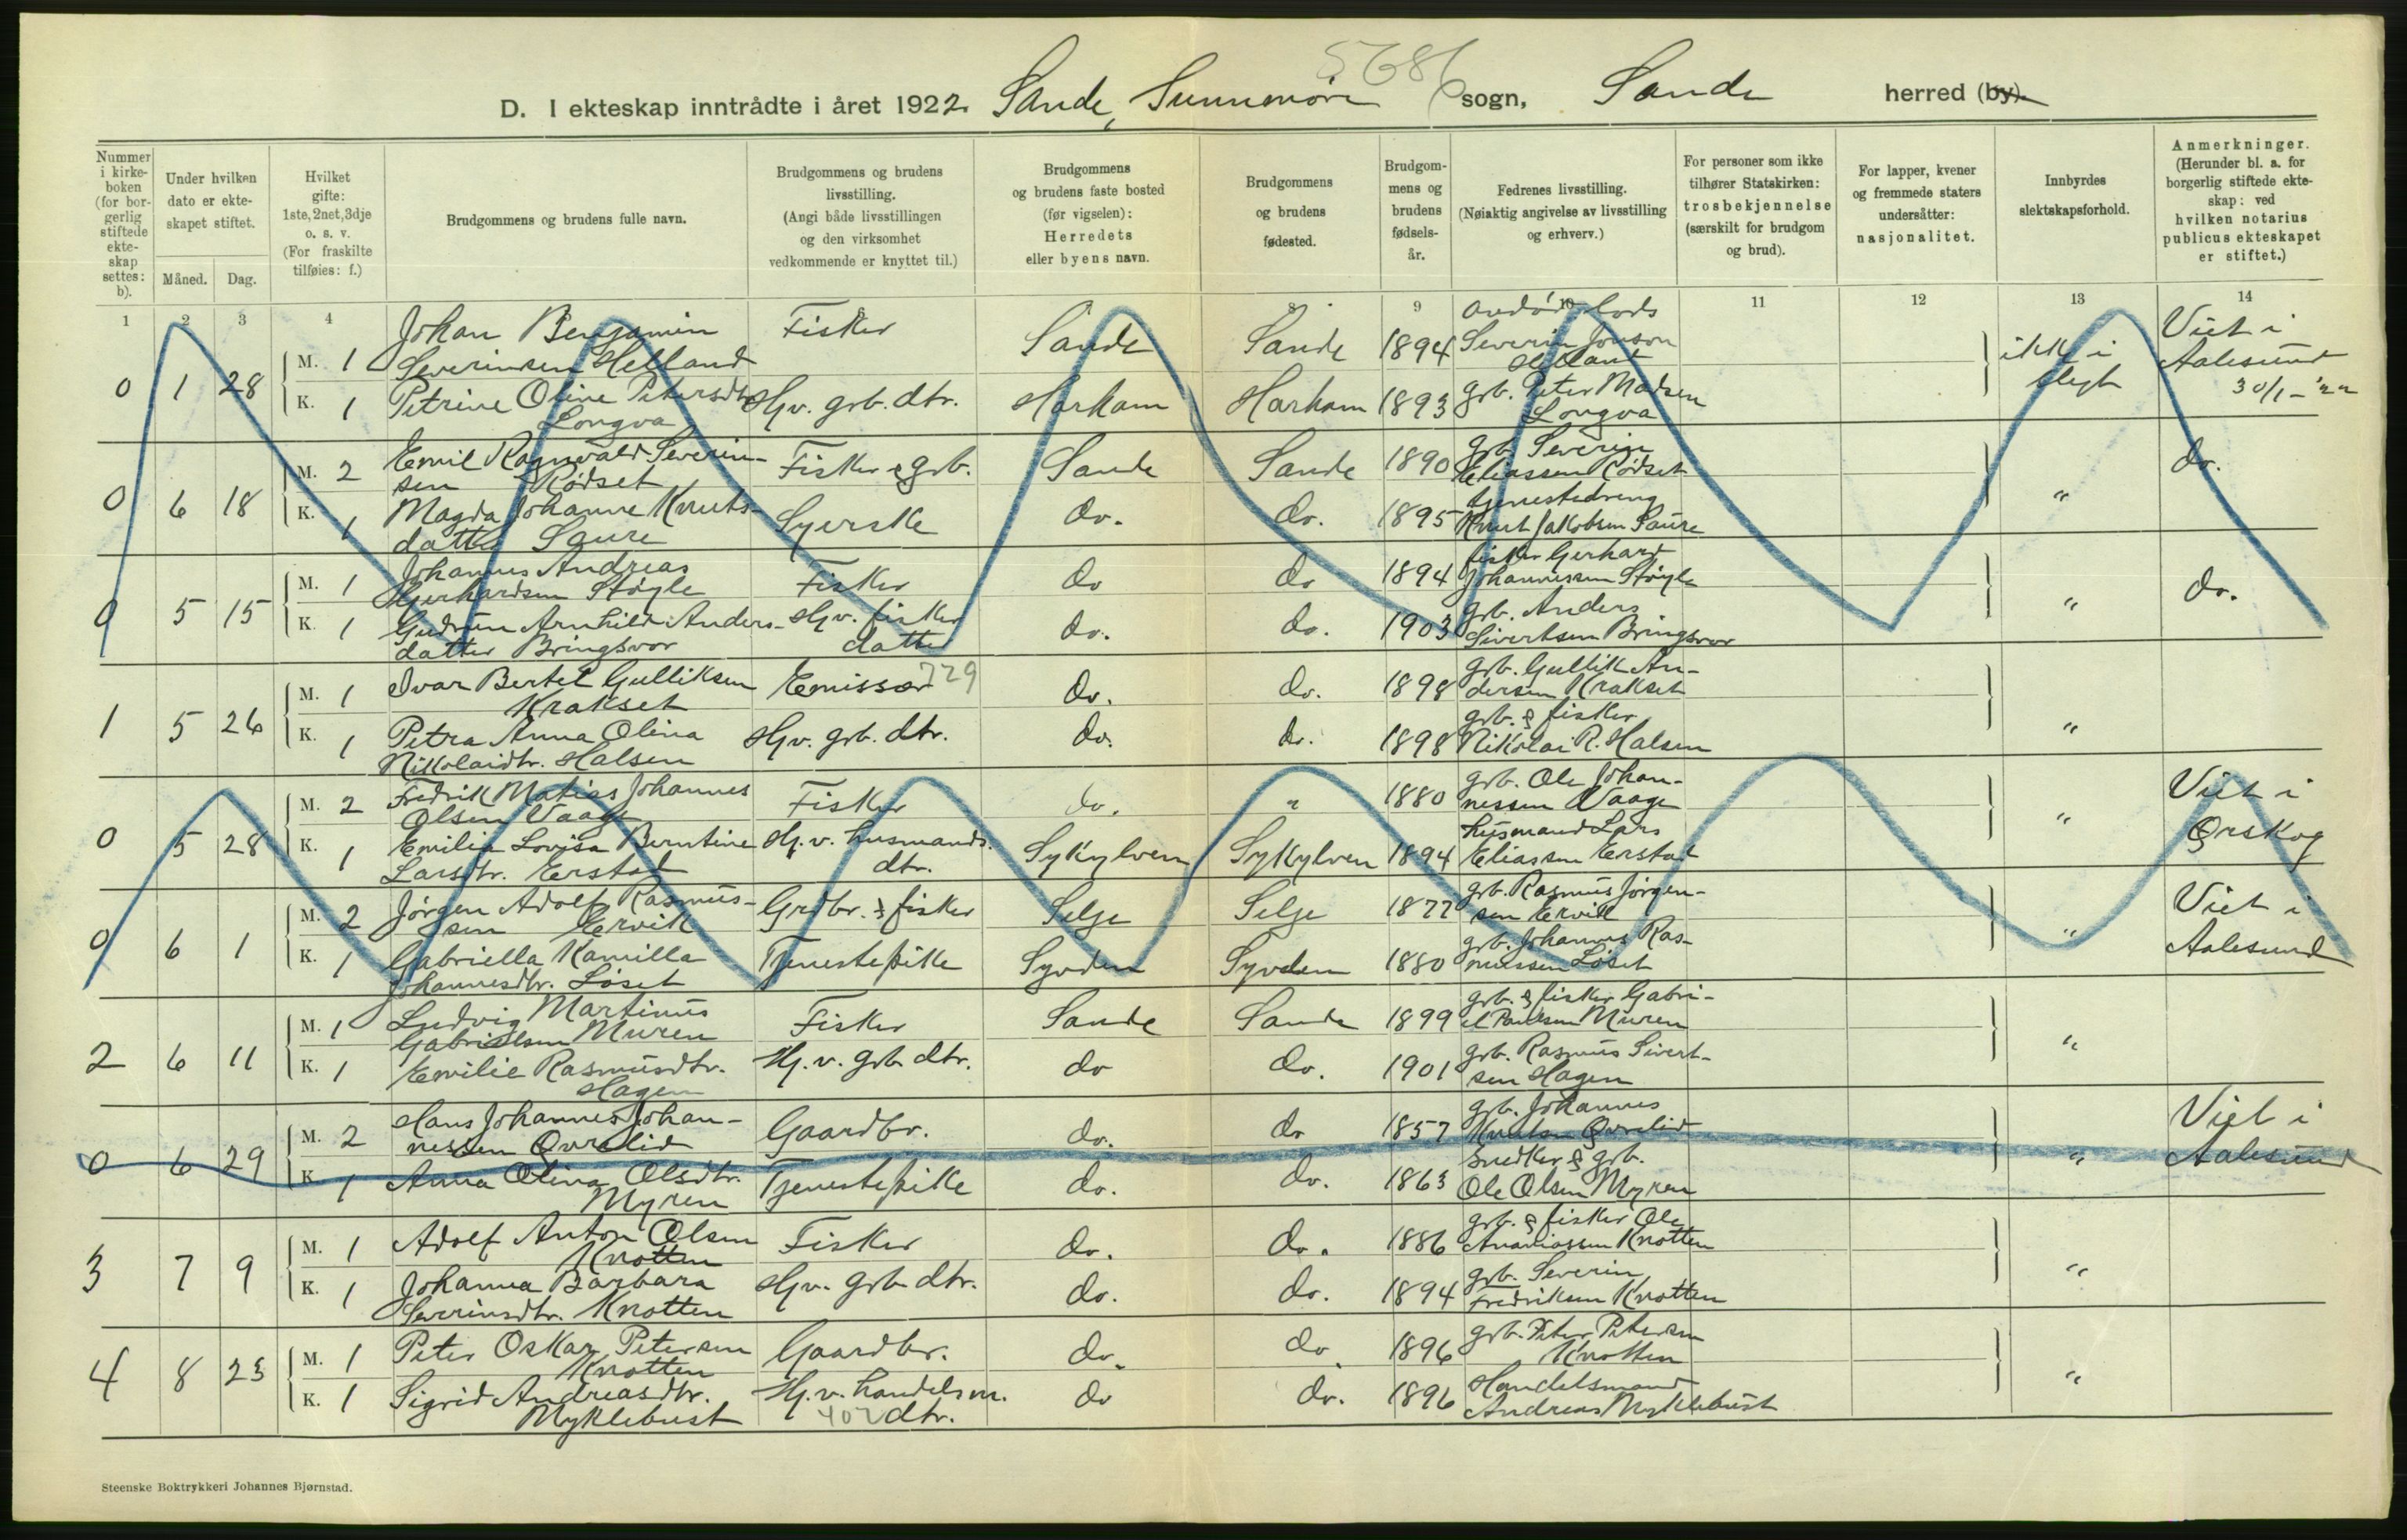 5686
D. I ekteskap inntrådte i året 1922 Sande, Sunnmøre sogn, Sande herred (by).
Nummer i kirkeboken (for borgerlig stiftede ekteskap settes: b).
Under hvilken dato er ekteskapet stiftet.
Måned.
Dag.
Hvilket gifte: 1ste, 2net, 3dje o. s. v. (For fraskilte tilføies: f.)
Brudgommens og brudens fulle navn.
Brudgommens og brudens livsstilling. (Angi både livsstillingen og den virksomhet vedkommende er knyttet til.)
Brudgommens og brudens faste bosted (før vigselen): Herredets eller byens navn.
Brudgommens og brudens fødested.
Brudgommens og brudens fødselsår.
Fedrenes livsstilling. (Nøiaktig angivelse av livsstilling og erhverv.)
For personer som ikke tilhører Statskirken: trosbekjennelse (særskilt for brudgom og brud).
For lapper, kvener og fremmede staters undersåtter: nasjonalitet.
Innbyrdes slektskapsforhold.
Anmerkninger. (Herunder bl. a. for borgerlig stiftede ekteskap: ved hvilken notarius publicus ekteskapet er stiftet.)
1 2 3 4 9 10 11 12 13 14
0 1 28 M. 1 Johan Benjamin Severinsen Helland Fisker Sande Sande 1894 lods Severin Jonson Helland ikke i slegt Viet i Aalesund 30/1-'22
K. 1 Petrine Oline Petersdtr Longva Hj.v. grb. dtr. Harham Harham 1893 grb. Peter Madsen Longva
0 6 18 M. 2 Emil Ragnvald Severinsen Rødset Fisker & grb. Sande Sande 1890 grb. Severin Eliassen Rødset " do.
K. 1 Magda Johanne Knutsdatter Saure Syerske do. do. 1895 tjenestedreng Knut Jakobsen Saure
0 5 15 M. 1 Johannes Andreas Gerhardsen Støyle Fisker do do 1894 fisker Gerhard Johannessen Støyle " do.
K. 1 Gudrun Arnhild Andersdatter Bringsvor Hj.v. fisker datter do. do. 1903 grb. Anders Sivertsen Bringsvor
1 5 26 M. 1 Ivar Bertel Gulliksen Krakset Emissær 729 do. do. 1898 grb. Gullik Andersen Krakset "
K. 1 Petra Anna Olina Nikolaidtr. Halsen Hj.v. grb. dtr. do. do. 1898 grb. & fisker Nikolai R. Halsen
0 5 28 M. 2 Fredrik Matias Johannes Olsen Vaage Fisker do. " 1880 grb. Ole Johannessen Vaage " Viet i Ørskog
K. 1 Emilie Lovisa Berntine Larsdtr. Erstad Hj.v. husmands. dtr. Sykylven Sykylven 1894 husmand Lars Eliassen Erstad
0 6 1 M. 2 Jørgen Adolf Rasmussen Ervik Grdbr. & fisker Selje Selje 1877 grb. Rasmus Jørgensen Ervik " Viet i Aalesund
K. 1 Gabriella Kamilla Johannesdtr. Løset Tjenestepike Syvden Syvden 1880 grb. Johannes Rasmussen Løset
2 6 11 M. 1 Ludvig Martinus Gabrielsen Muren Fisker Sande Sande 1899 grb. & fisker Gabriel Paulsen Muren "
K. 1 Emilie Rasmusdtr. Hagen Hj.v. grb dtr. do do. 1901 grb. Rasmus Sivertsen Hagen
0 6 29 M. 2 Hans Johannes Johannessen Qvrelid Gaardbr. do. do 1857 grb. Johannes Knutsen Qvrelid " Viet i Aalesund
K. 1 Anna Olina Olsdtr. Myren Tjenestepike do. do. 1863 Snedker & grb. Ole Olsen Myren
3 7 9 M. 1 Adolf Anton Olsen Knotten Fisker do. do. 1886 grb. & fisker Ole Ananiassen Knotten "
K. 1 Johanna Barbara Severinsdtr. Knotten Hj.v. grb dtr. do. do. 1894 grb. Severin Fredriksen Knotten
4 8 23 M. 1 Peter Oskar Petersen Knotten Gaardbr. do. do 1896 grb. Peter Petersen Knotten "
K. 1 Sigrid Andreasdtr. Myklebust Hj.v. handelsm. 402 dtr. do do. 1896 Handelsmand Andreas Myklebust
Steenske Boktrykkeri Johannes Bjørnstad.